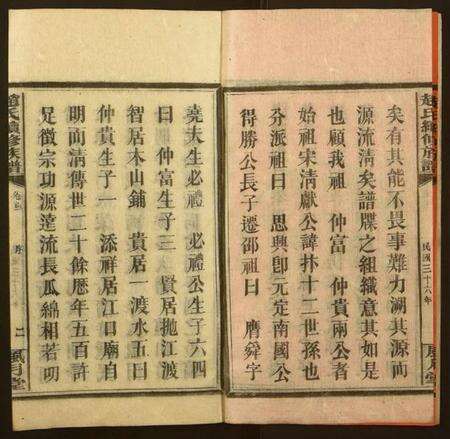 趙氏續修族譜
民國三十六年
風月堂
矣有其能不畏事難力溯其源而
源流清矣譜牒之組織意其如是
也顧我祖 仲富 仲貴兩公者
始祖宋清獻公諱抃十二世孫也
分派祖曰 思興卽元定南國公
得勝公長子遷邵祖曰 膺舜字
堯夫生必禮 必禮公生子六四
曰 仲富生子三 賢居拋江渡
智居木山鋪 貴居一渡水五曰
仲貴生子一 添祥居江口廟自
明而清傳世二十餘歷年五百許
足徵宗功源遠流長瓜綿相若明
趙氏續修族譜
卷首
序
二
風月堂